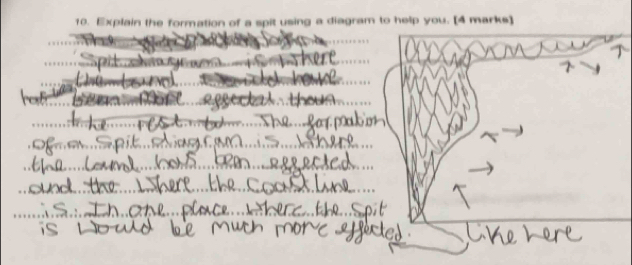 10. Explain the formation of a spit using a diagram to help you. [4 marks]
Spit diagram is where
the land would have
been more effected than
the rest to The formation
of a spit diagram is where
the land has been effected
and the where the coastline
is. In one place where the spit
is would be much more effected.
like here